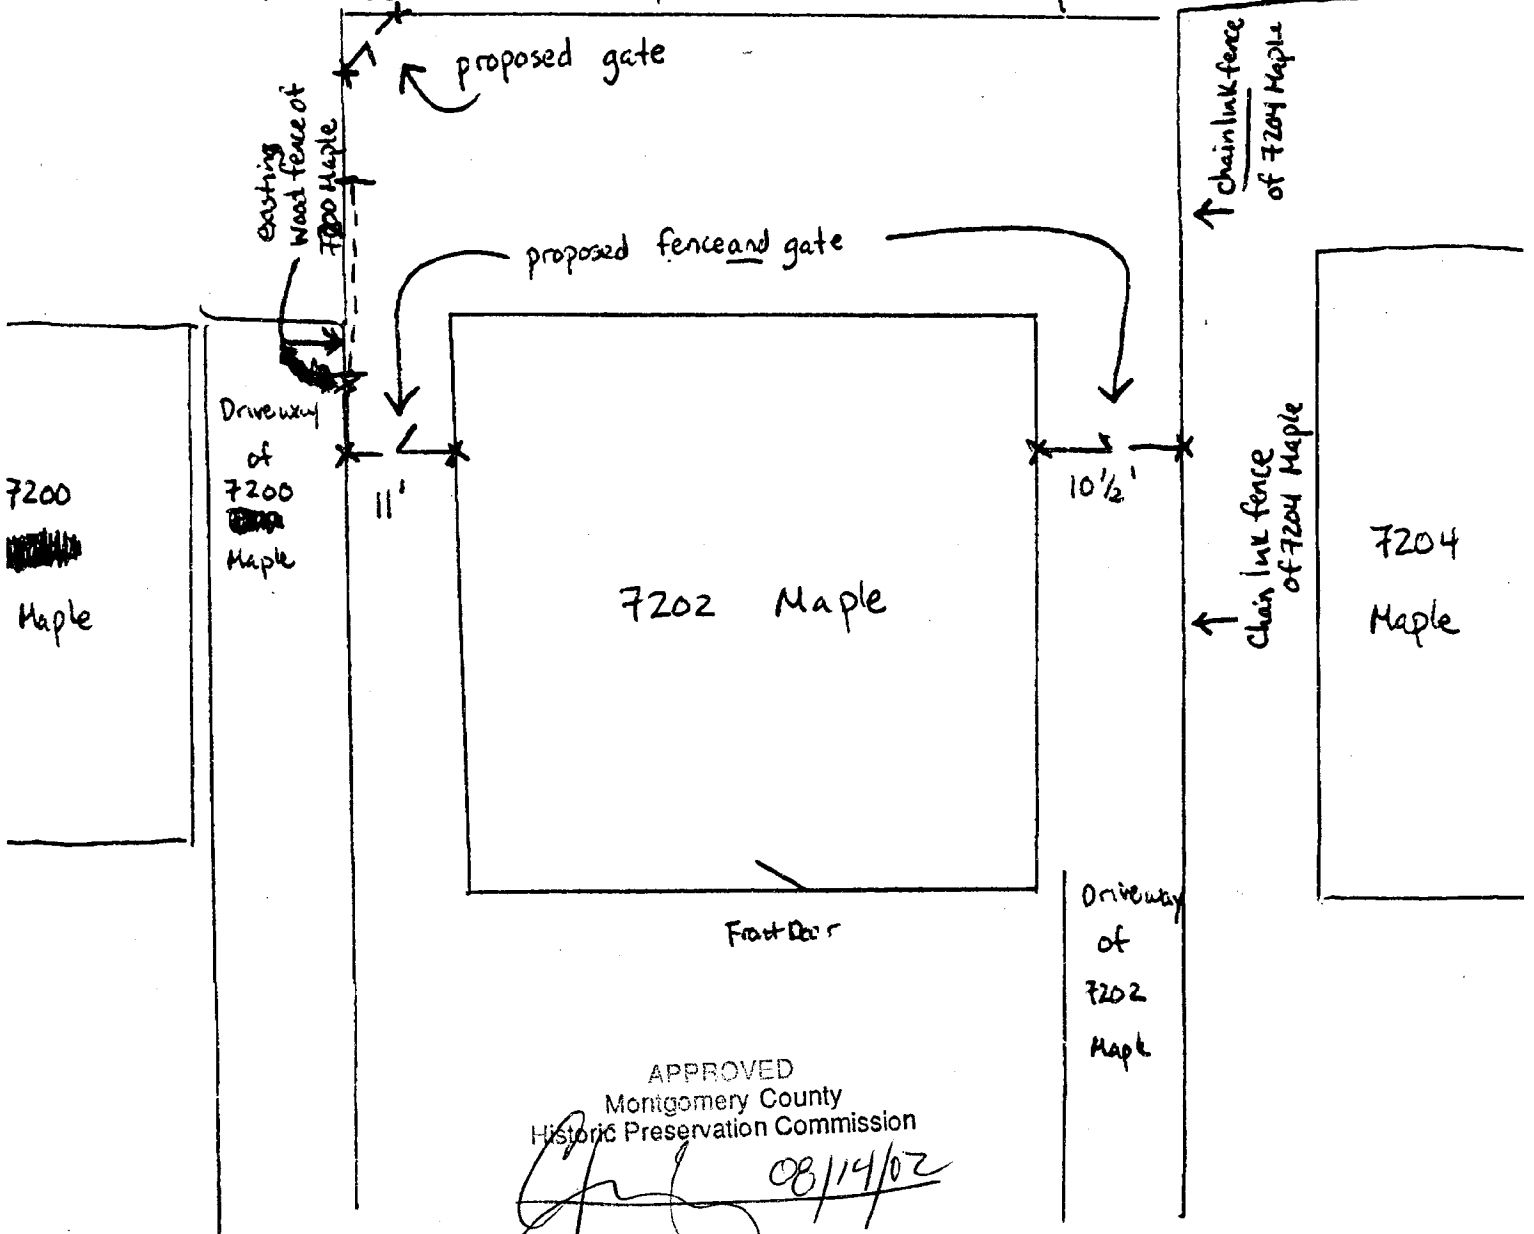 proposed gate
existing
Wood fence of
7200 Maple
chain link fence
of 7204 Maple
proposed fence and gate
Driveway
of
7200
Maple
7200
Maple
11'
10 1/2'
7202 Maple
Chain link fence
of 7204 Maple
7204
Maple
Front Door
Driveway
of
7202
Maple
APPROVED
Montgomery County
Historic Preservation Commission
08/14/02